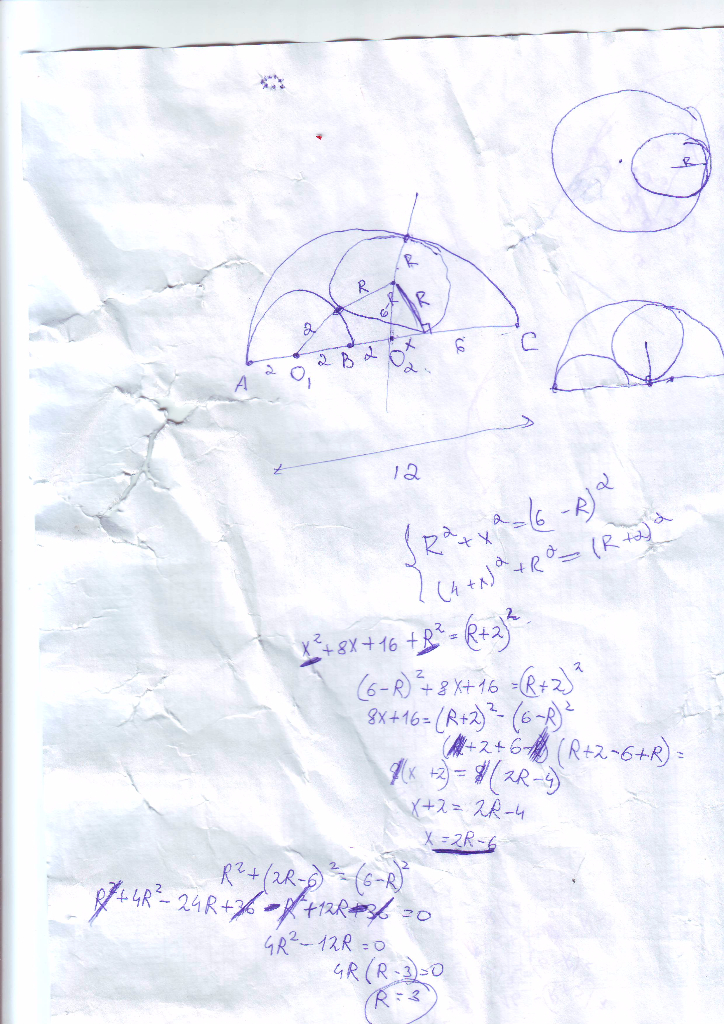 R
R
R
R
R
6
2
2
2
2
x
6
A
O₁
B
O₂
C
12
R² + x² = (6 - R)²
(4 + x)² + R² = (R + 2)²
x² + 8x + 16 + R² = (R+2)²
(6-R)² + 8x + 16 = (R+2)²
8x + 16 = (R+2)² - (6-R)²
(R+2+6-R)(R+2-6+R) =
8(x+2) = 8(2R-4)
x+2 = 2R-4
x = 2R-6
R² + (2R-6)² = (6-R)²
R² + 4R² - 24R + 36 - R² + 12R - 36 = 0
4R² - 12R = 0
4R(R-3) = 0
R = 3